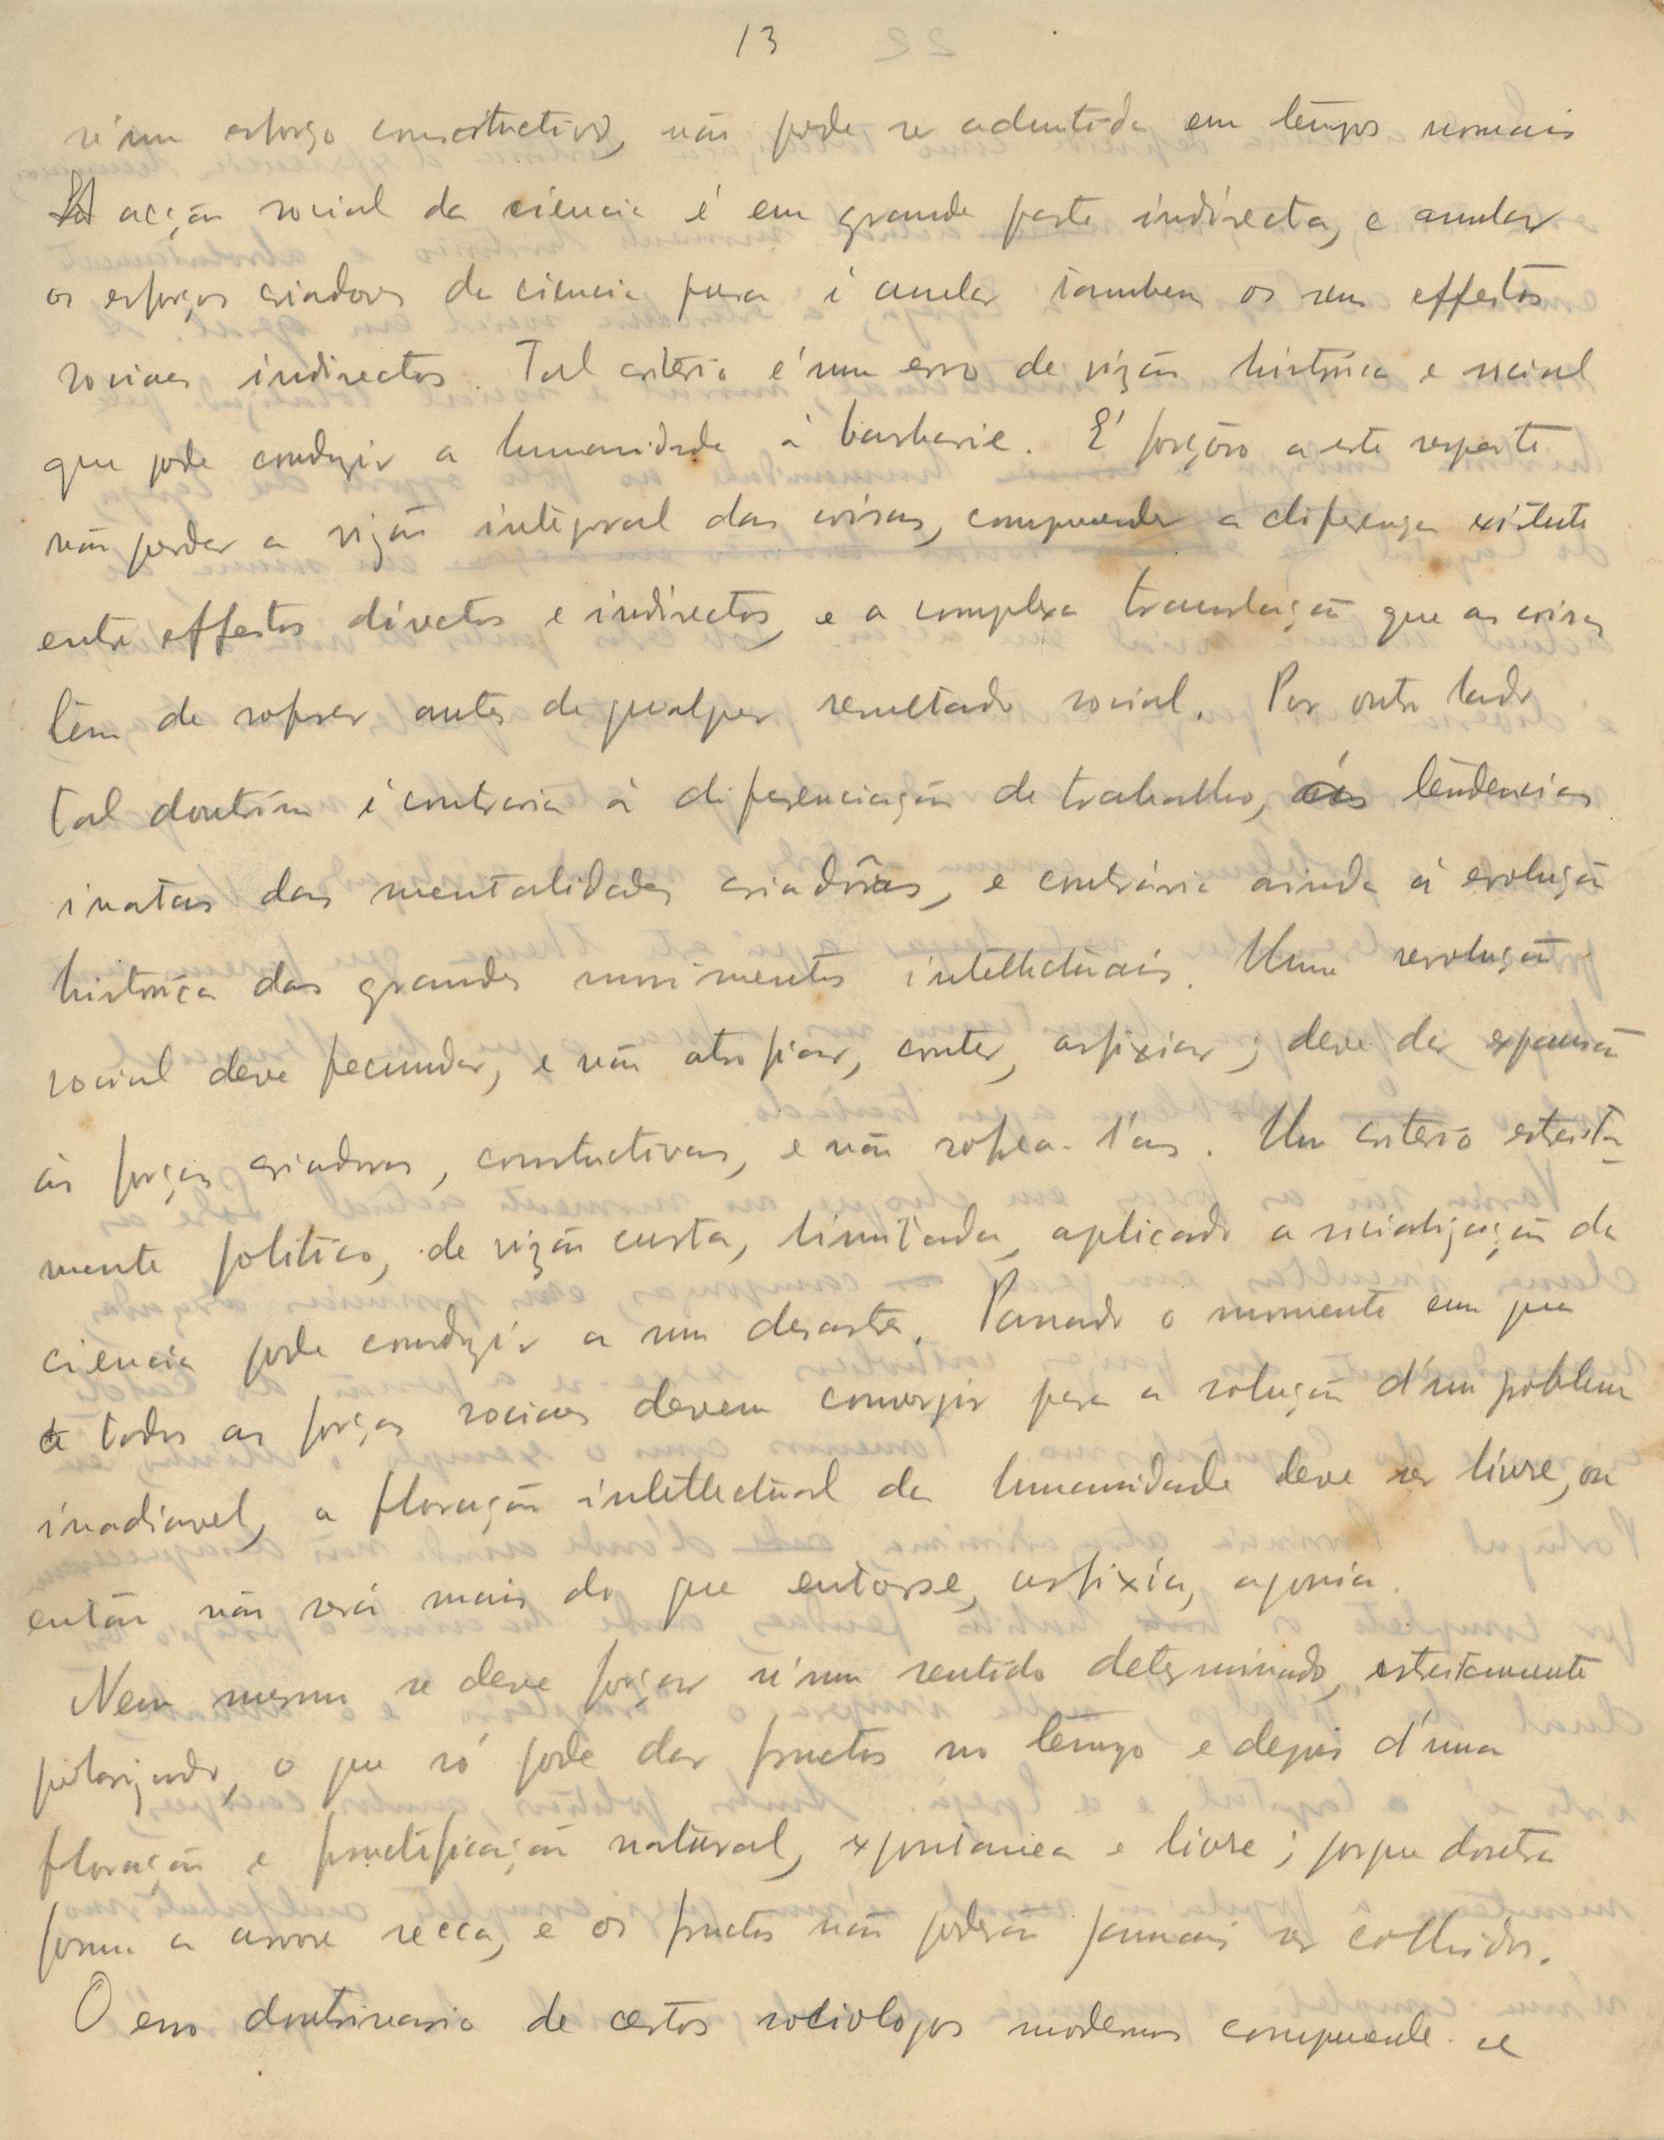 13
n'um esforço constructivo, não pode ser admitida em tempos normais
A acção social da ciencia é em grande parte indirecta, e anular
os esforços criadores da ciencia pura é anular tambem os seus effeitos
sociaes indirectos. Tal criterio é um erro de vizão histórica e social
que pode conduzir a humanidade á barbarie. É forçôso a este respeito
não perder a vizão integral das coisas, comprehender a diferença existente
entre effeitos directos e indirectos, e a complexa translação que as coisas
têm de sofrer antes de qualquer resultado social. Por outro lado
tal doutrina é contraria á diferenciação de trabalho, ás tendencias
inatas das mentalidades criadôras, e contrária ainda á evolução
histórica dos grandes movimentos intellectuais. Uma revolução
social deve fecundar, e não atrofiar, conter, asfixiar; deve dar expansão
ás forças criadoras, constructivas, e não sofrea-l'as. Um criterio estreita-
mente politico, de vizão curta, limitada, aplicado a socialização da
ciencia pode conduzir a um desastre. Passado o momento em que
todas as forças sociaes devem convergir para a solução d'um problema
inadiavel, a floração intellectual da humanidade deve ser livre, ou
então não será mais do que entorse, asfixia, agonia.
Nem mesmo se deve forçar n'um sentido determinado, estreitamente
polarizado, o que só pode dar fructos no tempo e depois d'uma
floração e fructificação natural, expontanea e livre; porque doutra
forma a arvore secca, e os fructos não poderão jamais ser colhidos.
O erro doutrinario de certos sociologos modernos comprehende-se